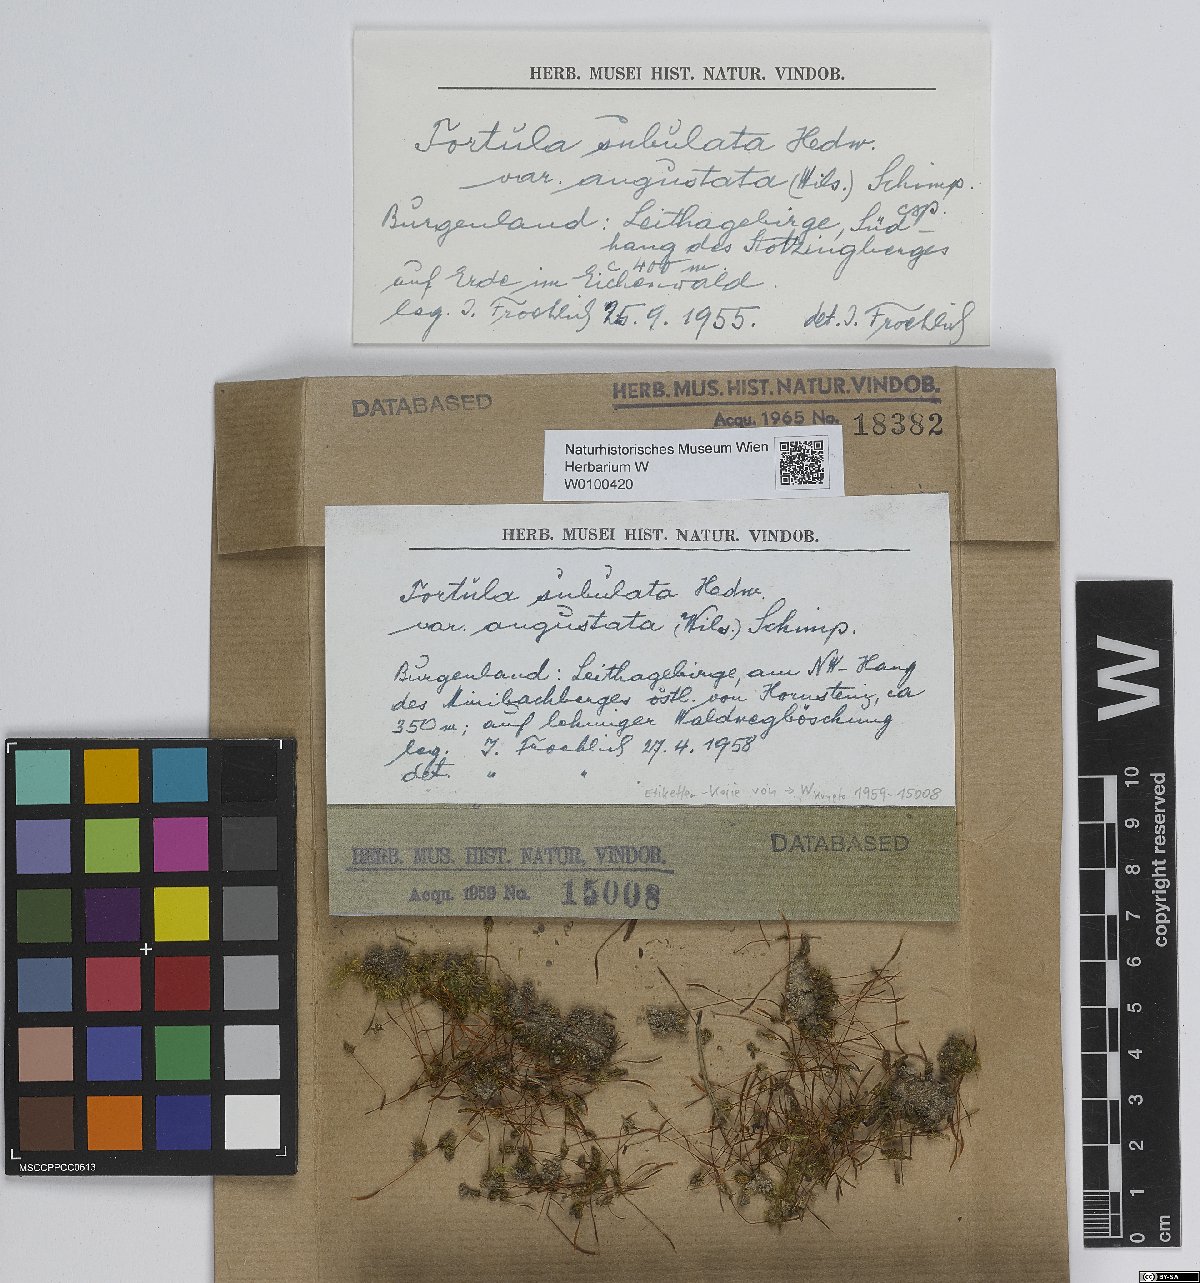 HERB. MUSEI HIST. NATUR. VINDOB.
Tortula subulata Hedw.
var. angustata (Wils.) Schimp.
csp.
Burgenland: Leithagebirge, Süd-
hang des Stotzingberges
c 400 m.
auf Erde im Eichenwald.
leg. J. Froehlich 25.9.1955. det. J. Froehlich
DATABASED
HERB. MUS. HIST. NATUR. VINDOB.
Acqu. 1965 No. 18382
Naturhistorisches Museum Wien
Herbarium W
W0100420
HERB. MUSEI HIST. NATUR. VINDOB.
Tortula subulata Hedw.
var. angustata (Wils.) Schimp.
Burgenland: Leithagebirge, am NW-Hang
des östl. von Hornstein, ca
350 m; auf lehmiger Waldwegböschung
leg. J. Froehlich 27.4.1958
det. " "
Etiketten-Kopie von → W 1959-15008
DATABASED
HERB. MUS. HIST. NATUR. VINDOB.
Acqu. 1959 No. 15008
MSCCPPCC0613
W
10 9 8 7 6 5 4 3 2 1 0 cm
copyright reserved
cc BY-SA